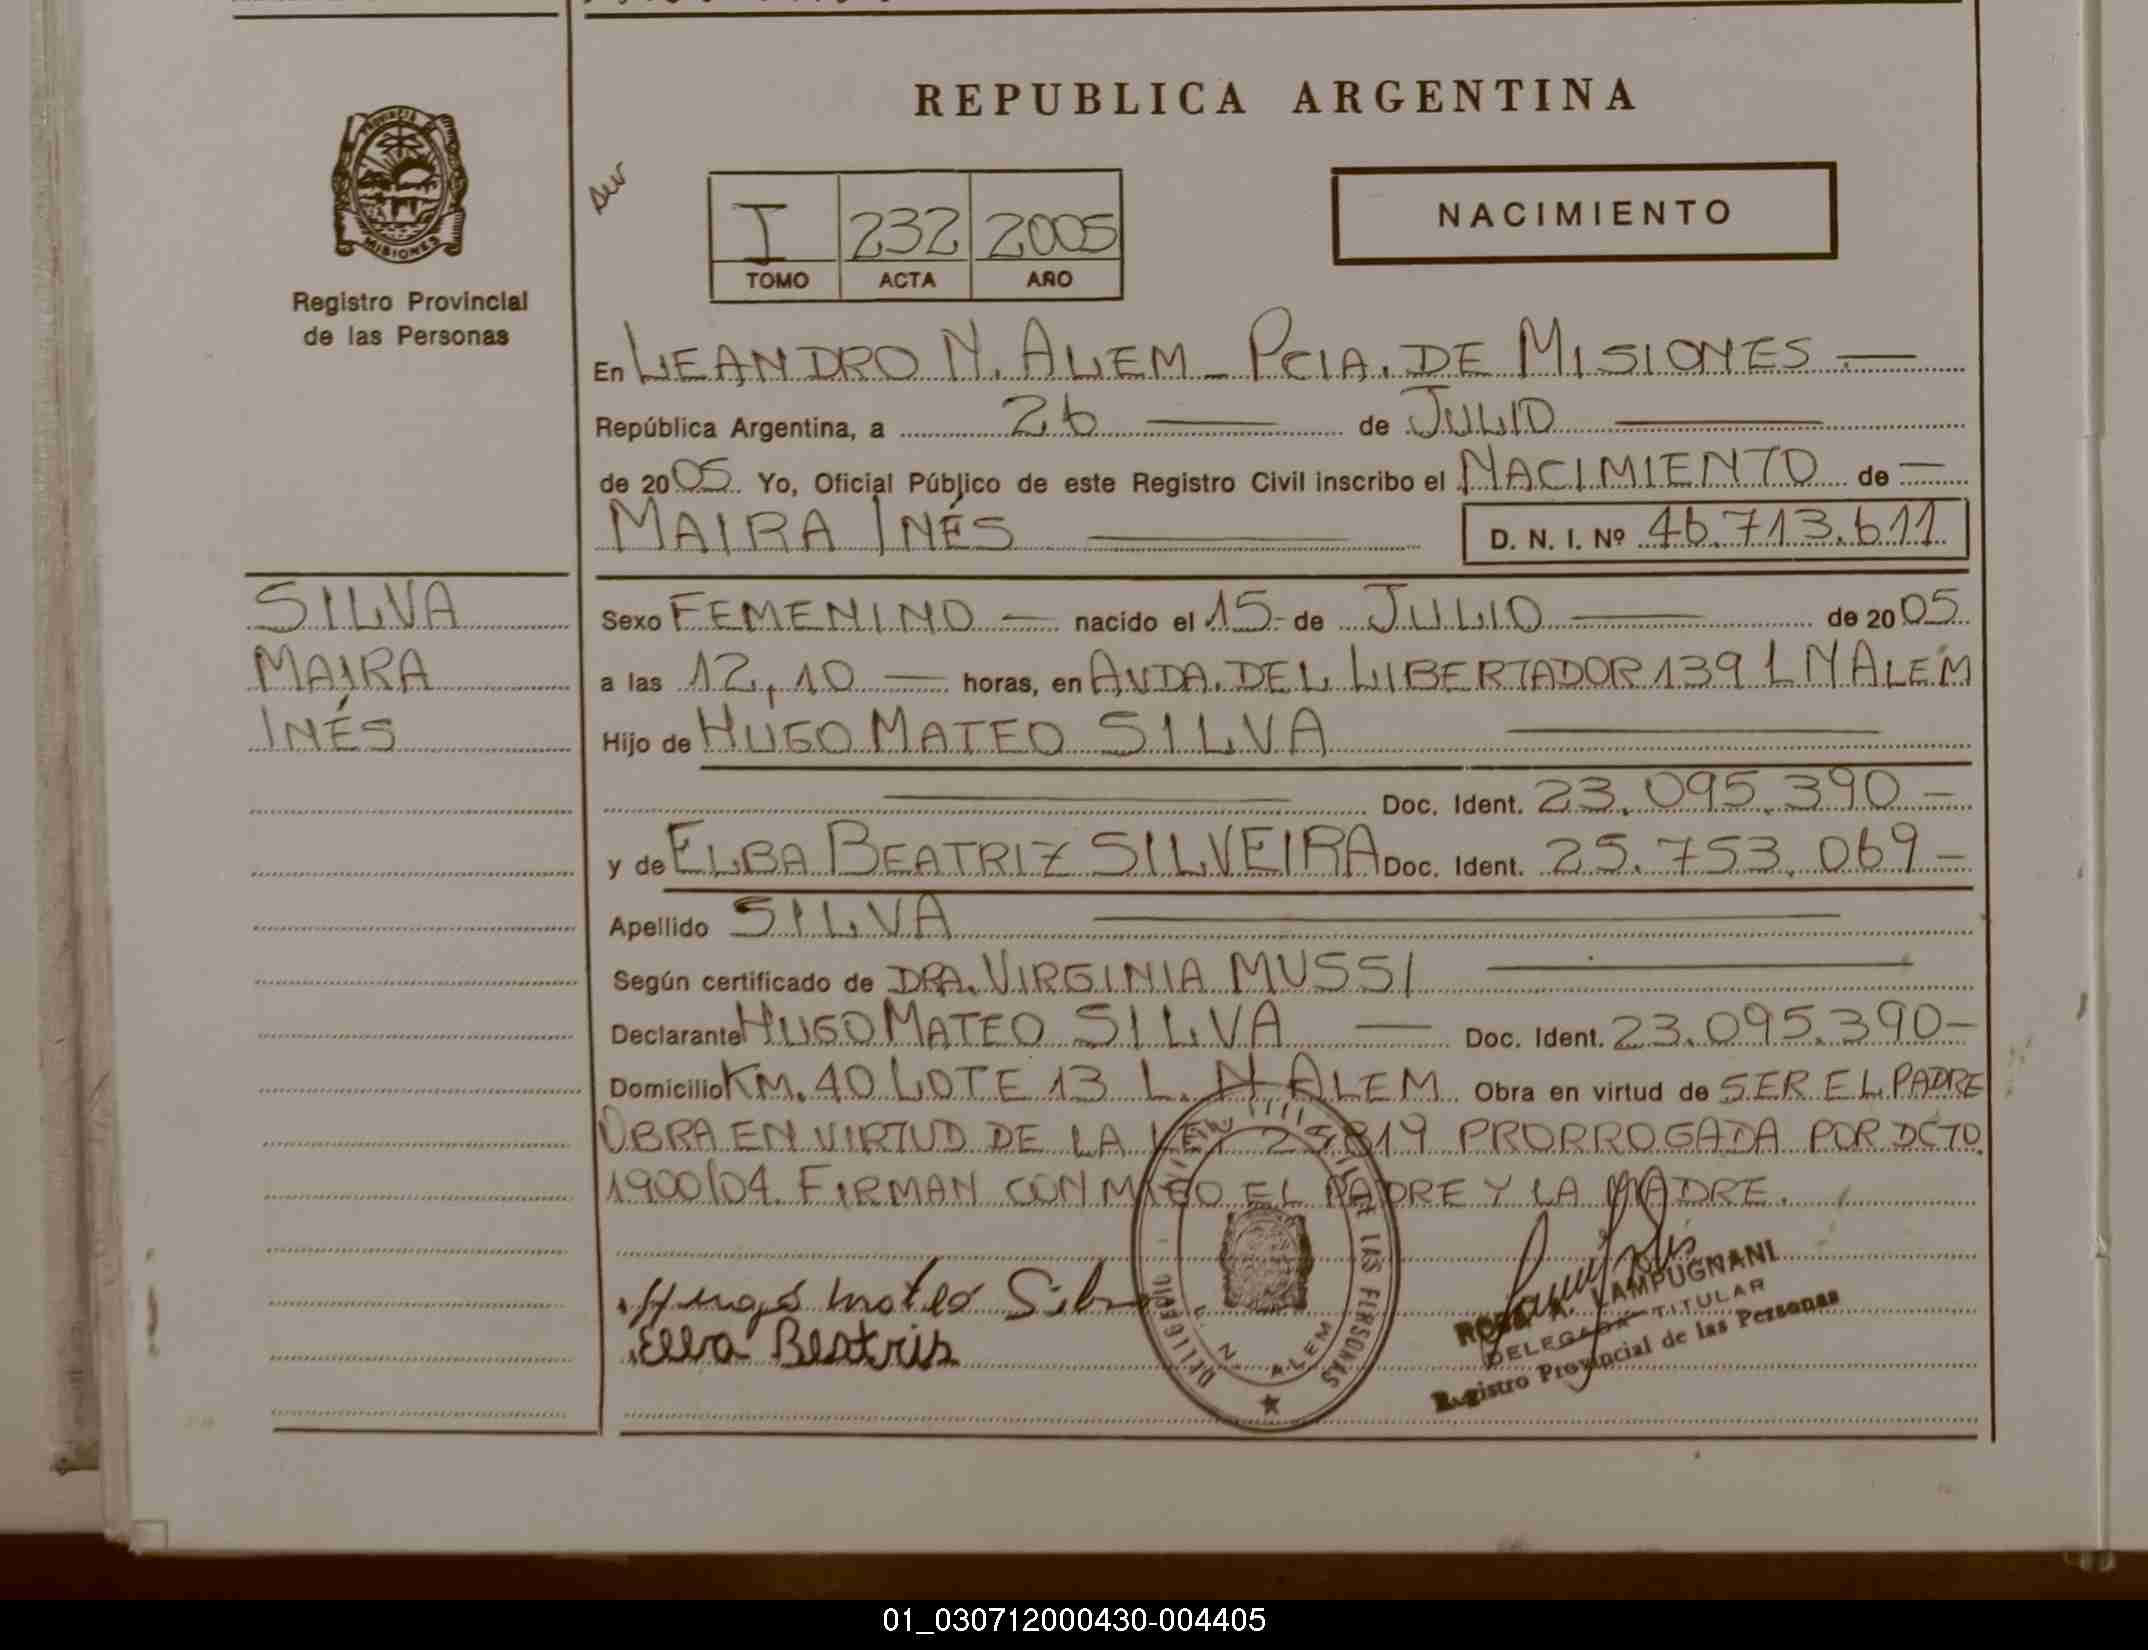 REPUBLICA ARGENTINA
PROVINCIA DE
MISIONES
Registro Provincial
de las Personas
I 232 2005
TOMO ACTA AÑO
NACIMIENTO
En LEANDRO N. ALEM - PCIA. DE MISIONES.—
República Argentina, a 26 — de JULIO —
de 2005. Yo, Oficial Público de este Registro Civil inscribo el NACIMIENTO de —
MAIRA INÉS — D. N. I. Nº 46.713.611
SILVA
MAIRA
INÉS
Sexo FEMENINO — nacido el 15- de JULIO — de 2005
a las 12,10 — horas, en AVDA. DEL LIBERTADOR 139 L N ALEM
Hijo de HUGO MATEO SILVA —
— Doc. Ident. 23.095.390 –
y de ELBA BEATRIZ SILVEIRA Doc. Ident. 25.753.069 –
Apellido SILVA —
Según certificado de DRA. VIRGINIA MUSSI —
Declarante HUGO MATEO SILVA — Doc. Ident. 23.095.390-
Domicilio KM. 40 LOTE 13 L. N ALEM Obra en virtud de SER EL PADRE
OBRA EN VIRTUD DE LA LEY 25.819 PRORROGADA POR DCTO.
1900/04. FIRMAN CONMIGO EL PADRE Y LA MADRE.
Hugo mateo Silva
Elba Beatris
DE LAS PERSONAS
L. N. ALEM
ROSA A. LAMPUGNANI
DELEGADA TITULAR
Registro Provincial de las Personas
01_030712000430-004405